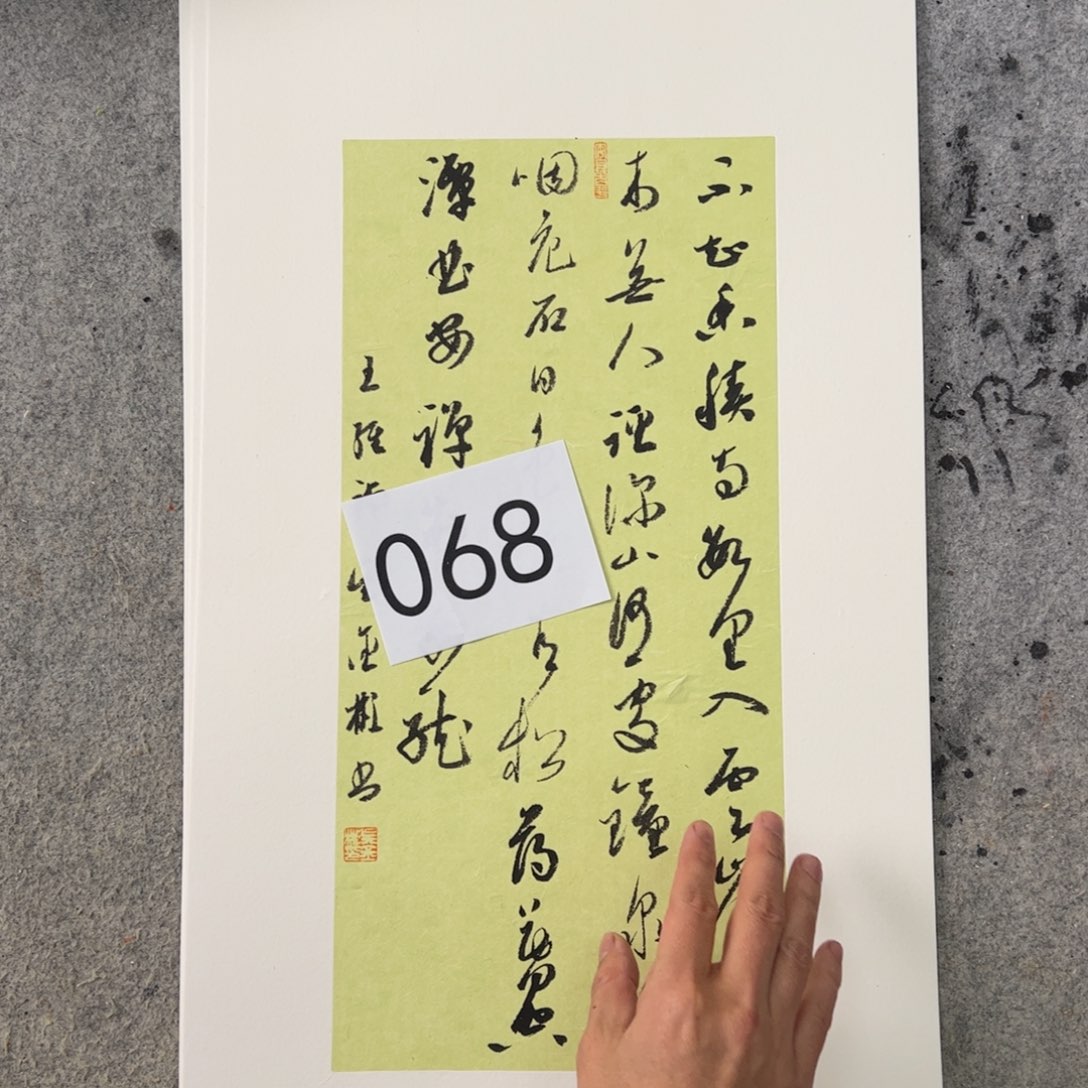 不知香積寺數里入雲峰
木無人徑深山何處鐘泉
咽危石日 松薄暮空
潭曲安禪 龍
王維 書
068